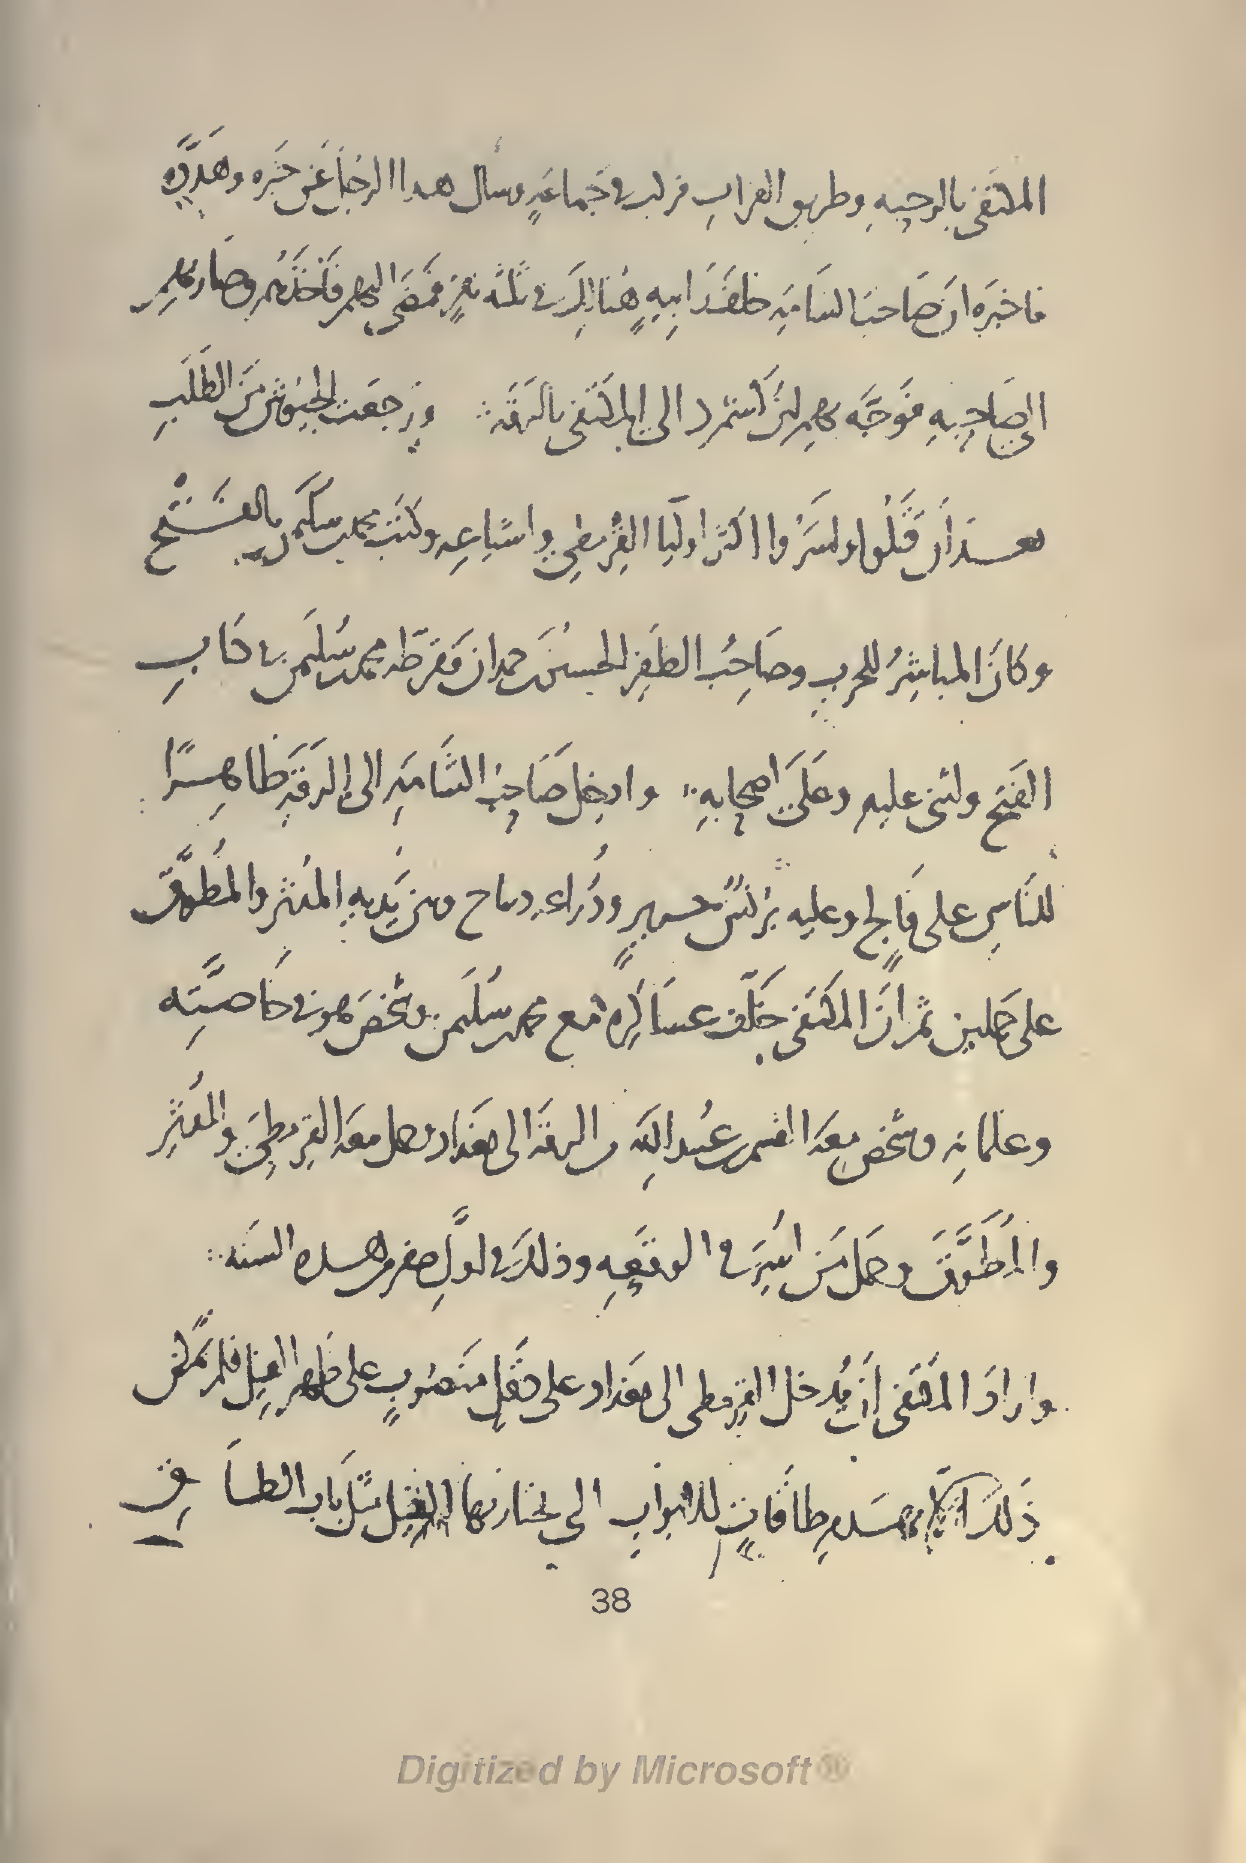 المكتفى بالرحبه وطريق الفرات فركب فى جماعةٍ وسأل هذا الرجل عن خبره وهدّده
فاخبره ان صاحب الشامة خلف رابيةٍ هنالك فى ثلثه نفرٍ فمضى اليهم فاخذهم وصار بهم
الى صاحبه فتوجّه بهم ابن كشمرد الى المكتفى بالرقه ورجعت الجيوش من الطلب
بعد ان قتلوا واسروا اكثر اوليا القرمطى واشياعه وكتب محمد بن سليمن بالفتح
وكان المباشر للحرب وصاحب الظفر الحسين بن حمدان فقرظه محمد بن سليمن فى كتاب
الفتح واثنى عليه وعلى اصحابه وادخل صاحب الشامة الى الرقة ظاهرًا
للناس على فالج وعليه برنس حرير ودراعه ديباج وبين يديه المدثر والمطوق
على جملين ثم ان المكتفى خلّف عساكره مع محمد بن سليمن وشخص هو فى خاصّته
وغلمانه وشخص معه القسم بن عبيد الله من الرقه الى بغداد وحمل معه القرمطى والمدثر
والمطوّق وحمل من اسر فى الوقعه وذلك فى اول صفر من هذه السنه
واراد المكتفى ان يدخل القرمطى الى بغداد على دقل منصوب على ظهر الفيل فلم يمكن
ذلك الا بهدم طاقات للابواب التى يجتاز بها الفيل مثل باب الطاق
38
Digitized by Microsoft®